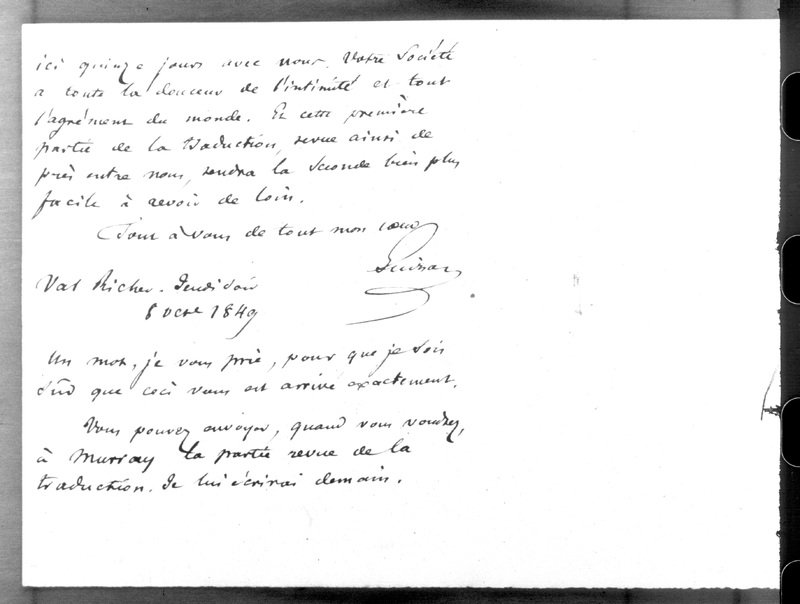 ici quinze jours avec nous. Votre Société
a toute la douceur de l'intimité et tout
l'agrément du monde. Et cette première
partie de la traduction, revue ainsi de
près entre nous, rendra la seconde bien plus
facile à revoir de loin.
Tout à vous de tout mon cœur
Guizot
Val Richer. Jeudi soir
8bre 1849
Un mot, je vous prie, pour que je sois
sûr que ceci vous est arrivé exactement.
Vous pouvez envoyer, quand vous voudrez,
à Murray la partie revue de la
traduction. Je lui écrirai demain.